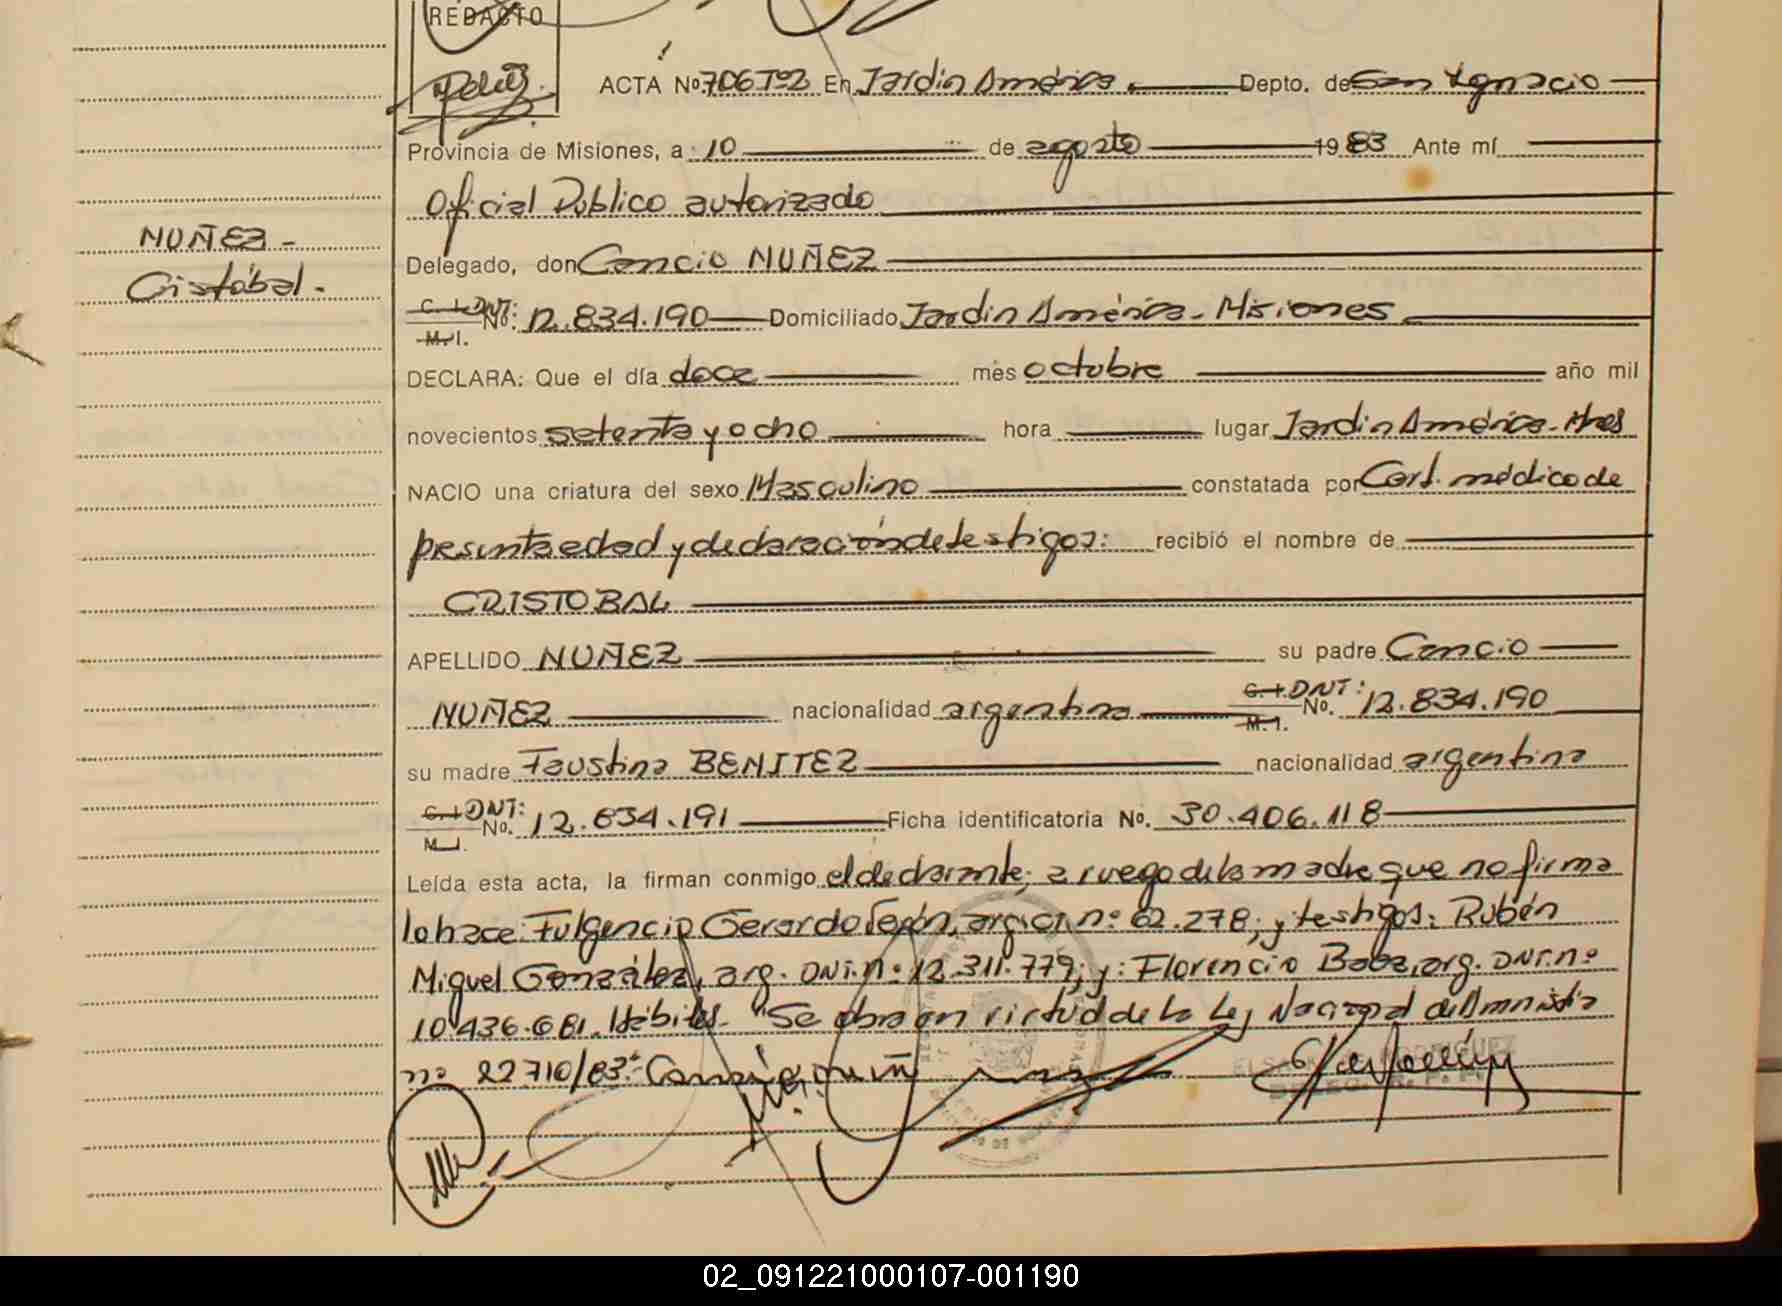 REDACTO
ACTA No. 706 Tº2 En Jardin América. Depto. de San Ignacio
Provincia de Misiones, a 10 de agosto 1983 Ante mí
Oficial Publico autorizado
NUÑEZ -
Cristóbal. -
Delegado, don Cancio NUÑEZ
C. I. DNI: No. 12.834.190 Domiciliado Jardin América - Misiones
M. I.
DECLARA: Que el día doce mes octubre año mil
novecientos setenta y ocho hora lugar Jardin América - Mnes
NACIO una criatura del sexo Masculino constatada por Cert. médico de
presunta edad y declaración de testigos: recibió el nombre de
CRISTOBAL
APELLIDO NUÑEZ su padre Cancio
NUÑEZ nacionalidad argentina C. I. DNI: No. 12.834.190
M. I.
su madre Faustina BENITEZ nacionalidad argentina
C. I. DNI: No. 12.834.191 Ficha identificatoria No. 30.406.118
M. I.
Leída esta acta, la firman conmigo el declarante; a ruego de la madre que no firma
lo hace Fulgencio Gerardo arg. CI. nº 62.278; y testigos: Rubén
Miguel González, arg. DNI. nº 12.311.779; y: Florencio Baez, arg. DNI. nº
10.436.681. Hábiles. - "Se obra en virtud de la Ley Nacional de Amnistia
nº 22710/83".-
02_091221000107-001190